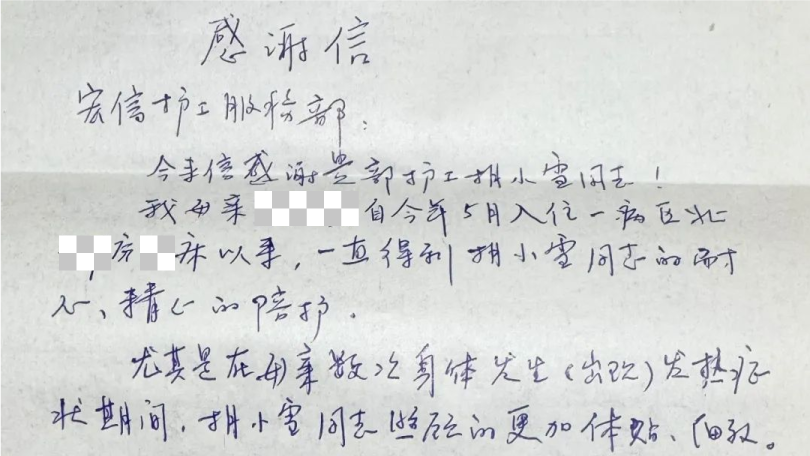 感谢信
宏信护工服务部:
今来信感谢贵部护工胡小雪同志!
我母亲 自今年5月入住一病区北
房 床以来,一直得到胡小雪同志的耐
心、精心的陪护。
尤其是在母亲数次身体发生(出现)发热症
状期间,胡小雪同志照顾的更加体贴、细致。